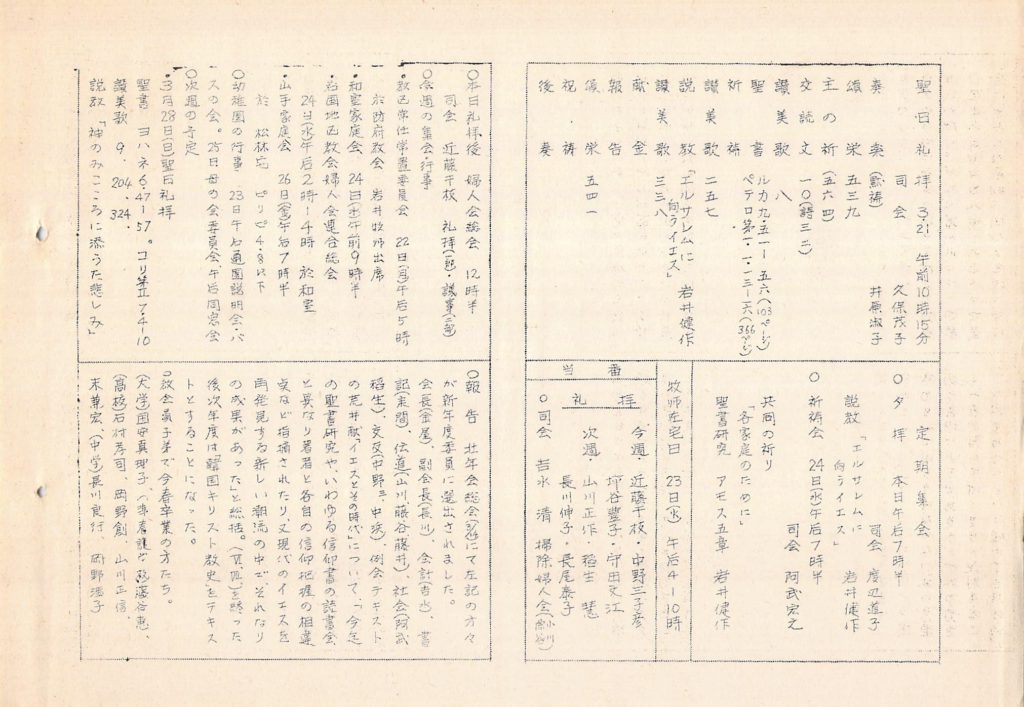 聖日礼拝 3.21. 午前10時15分
司会 久保茂子
奏楽 (黙祷) 井原淑子
頌栄 五三九
主の祈 (五六四)
交読文 一〇(詩三二)
讃美歌 八
聖書 ルカ九・五一―五六(103ページ)
ペテロ第一・一・一三―二六(366ページ)
祈祷
讃美歌 二五七
説教 「エルサレムに向うイエス」 岩井健作
讃美歌 三三八
献金
報告
後栄 五四一
祝祷
後奏
定期集会
〇夕拝 本日午后7時半
司会 渡辺道子
説教 「エルサレムに向うイエス」 岩井健作
〇祈祷会 24日(水)午后7時半
司会 阿武宏之
共同の祈り
「各家庭のために」
聖書研究 アモス五章 岩井健作
牧師在宅日 23日(火) 午后4―10時
当番
礼拝
今週・近藤千枝・中野三子彦
埣谷豊子・守田文江
次週・山川正作・稲生慧
長川伸子・長尾泰子
〇司会 吉永清 掃除婦人会
〇本日礼拝後 婦人会総会 12時半
司会 近藤千枝 礼拝(一部)・議事(二部)
〇今週の集会・行事
・教区常任常置委員会 22日(月)午后5時
於防府教会 岩井牧師出席
・和室家庭会、24日(水)午前9時半
・岩国地区教会婦人会連合総会
24日(水)午后2時―4時 於和室
・山手家庭会 26日(金)午后7時半
於 松林宅 ピリピ4・8以下
〇幼稚園の行事 23日午后通園説明会・バ
スの会。25日母の会委員会午后同窓会
〇次週の予定
・3月28日(日)聖日礼拝
聖書 ヨハネ6・47―57。コリ第Ⅱ7・4―10
讃美歌 9. 204. 324.
説教「神のみこころに添うた悲しみ」
〇報告 壮年会総会にて左記の方々
が新年度委員に選出されました。
会長(金屋)、副会長(長川)、会計(吉武)、書
記(末間)、伝道(山川藤谷、藤井)、社会(阿武
稲生)、交友(中野三、中浜) 例会テキスト
の荒井献「イエスとその時代」について、「今迄
の聖書研究や、いわゆる信仰書の読書会
と異なり著者と各自の信仰把握の相違
点など指摘されたリ、現代のイエスを
再発見する新しい潮流の中でそれなり
の成果があった」と総括。を終った
後次年度は「韓国キリスト教史」をテキス
トとすることになった。
〇教会員子弟で今春卒業の方たち。
(大学)国安真理子、藤谷恵、
(高校)石村孝司、岡野創、山川正信、
末兼宏、(中学)長川良行、岡野澄子